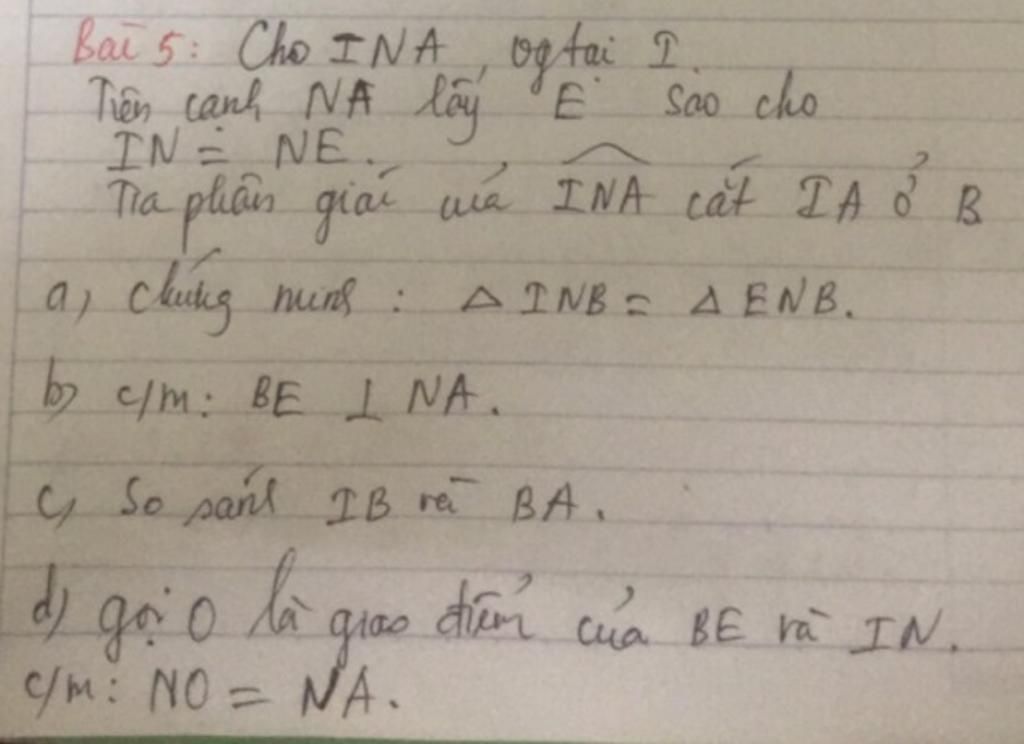 Bài 5: Cho INA, vg tại I.
Trên cạnh NA lấy E sao cho
IN = NE.
Tia phân giác của INA cắt IA ở B
a, chứng minh : △ INB = △ ENB.
b) c/m: BE ⊥ NA.
c, So sánh IB và BA.
d) gọi O là giao điểm của BE và IN.
c/m: NO = NA.